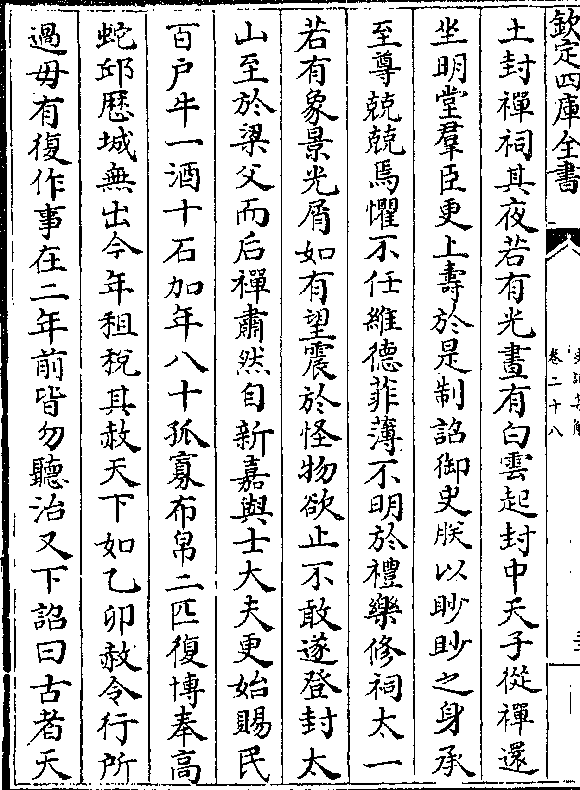 欽定四庫全書
卷二十八
土封禪祠其夜若有光晝有白雲起封中天子從禪還
坐明堂羣臣更上壽於是制詔御史朕以眇眇之身承
至尊兢兢焉懼不任維德菲薄不明於禮樂修祠太一
若有象景光屑如有望震於怪物欲止不敢遂登封太
山至於梁父而后禪肅然自新嘉與士大夫更始賜民
百户牛一酒十石加年八十孤寡布帛二匹復博奉高
蛇邱歷城無出今年租稅其赦天下如乙卯赦令行所
過毋有復作事在二年前皆勿聽治又下詔曰古者天